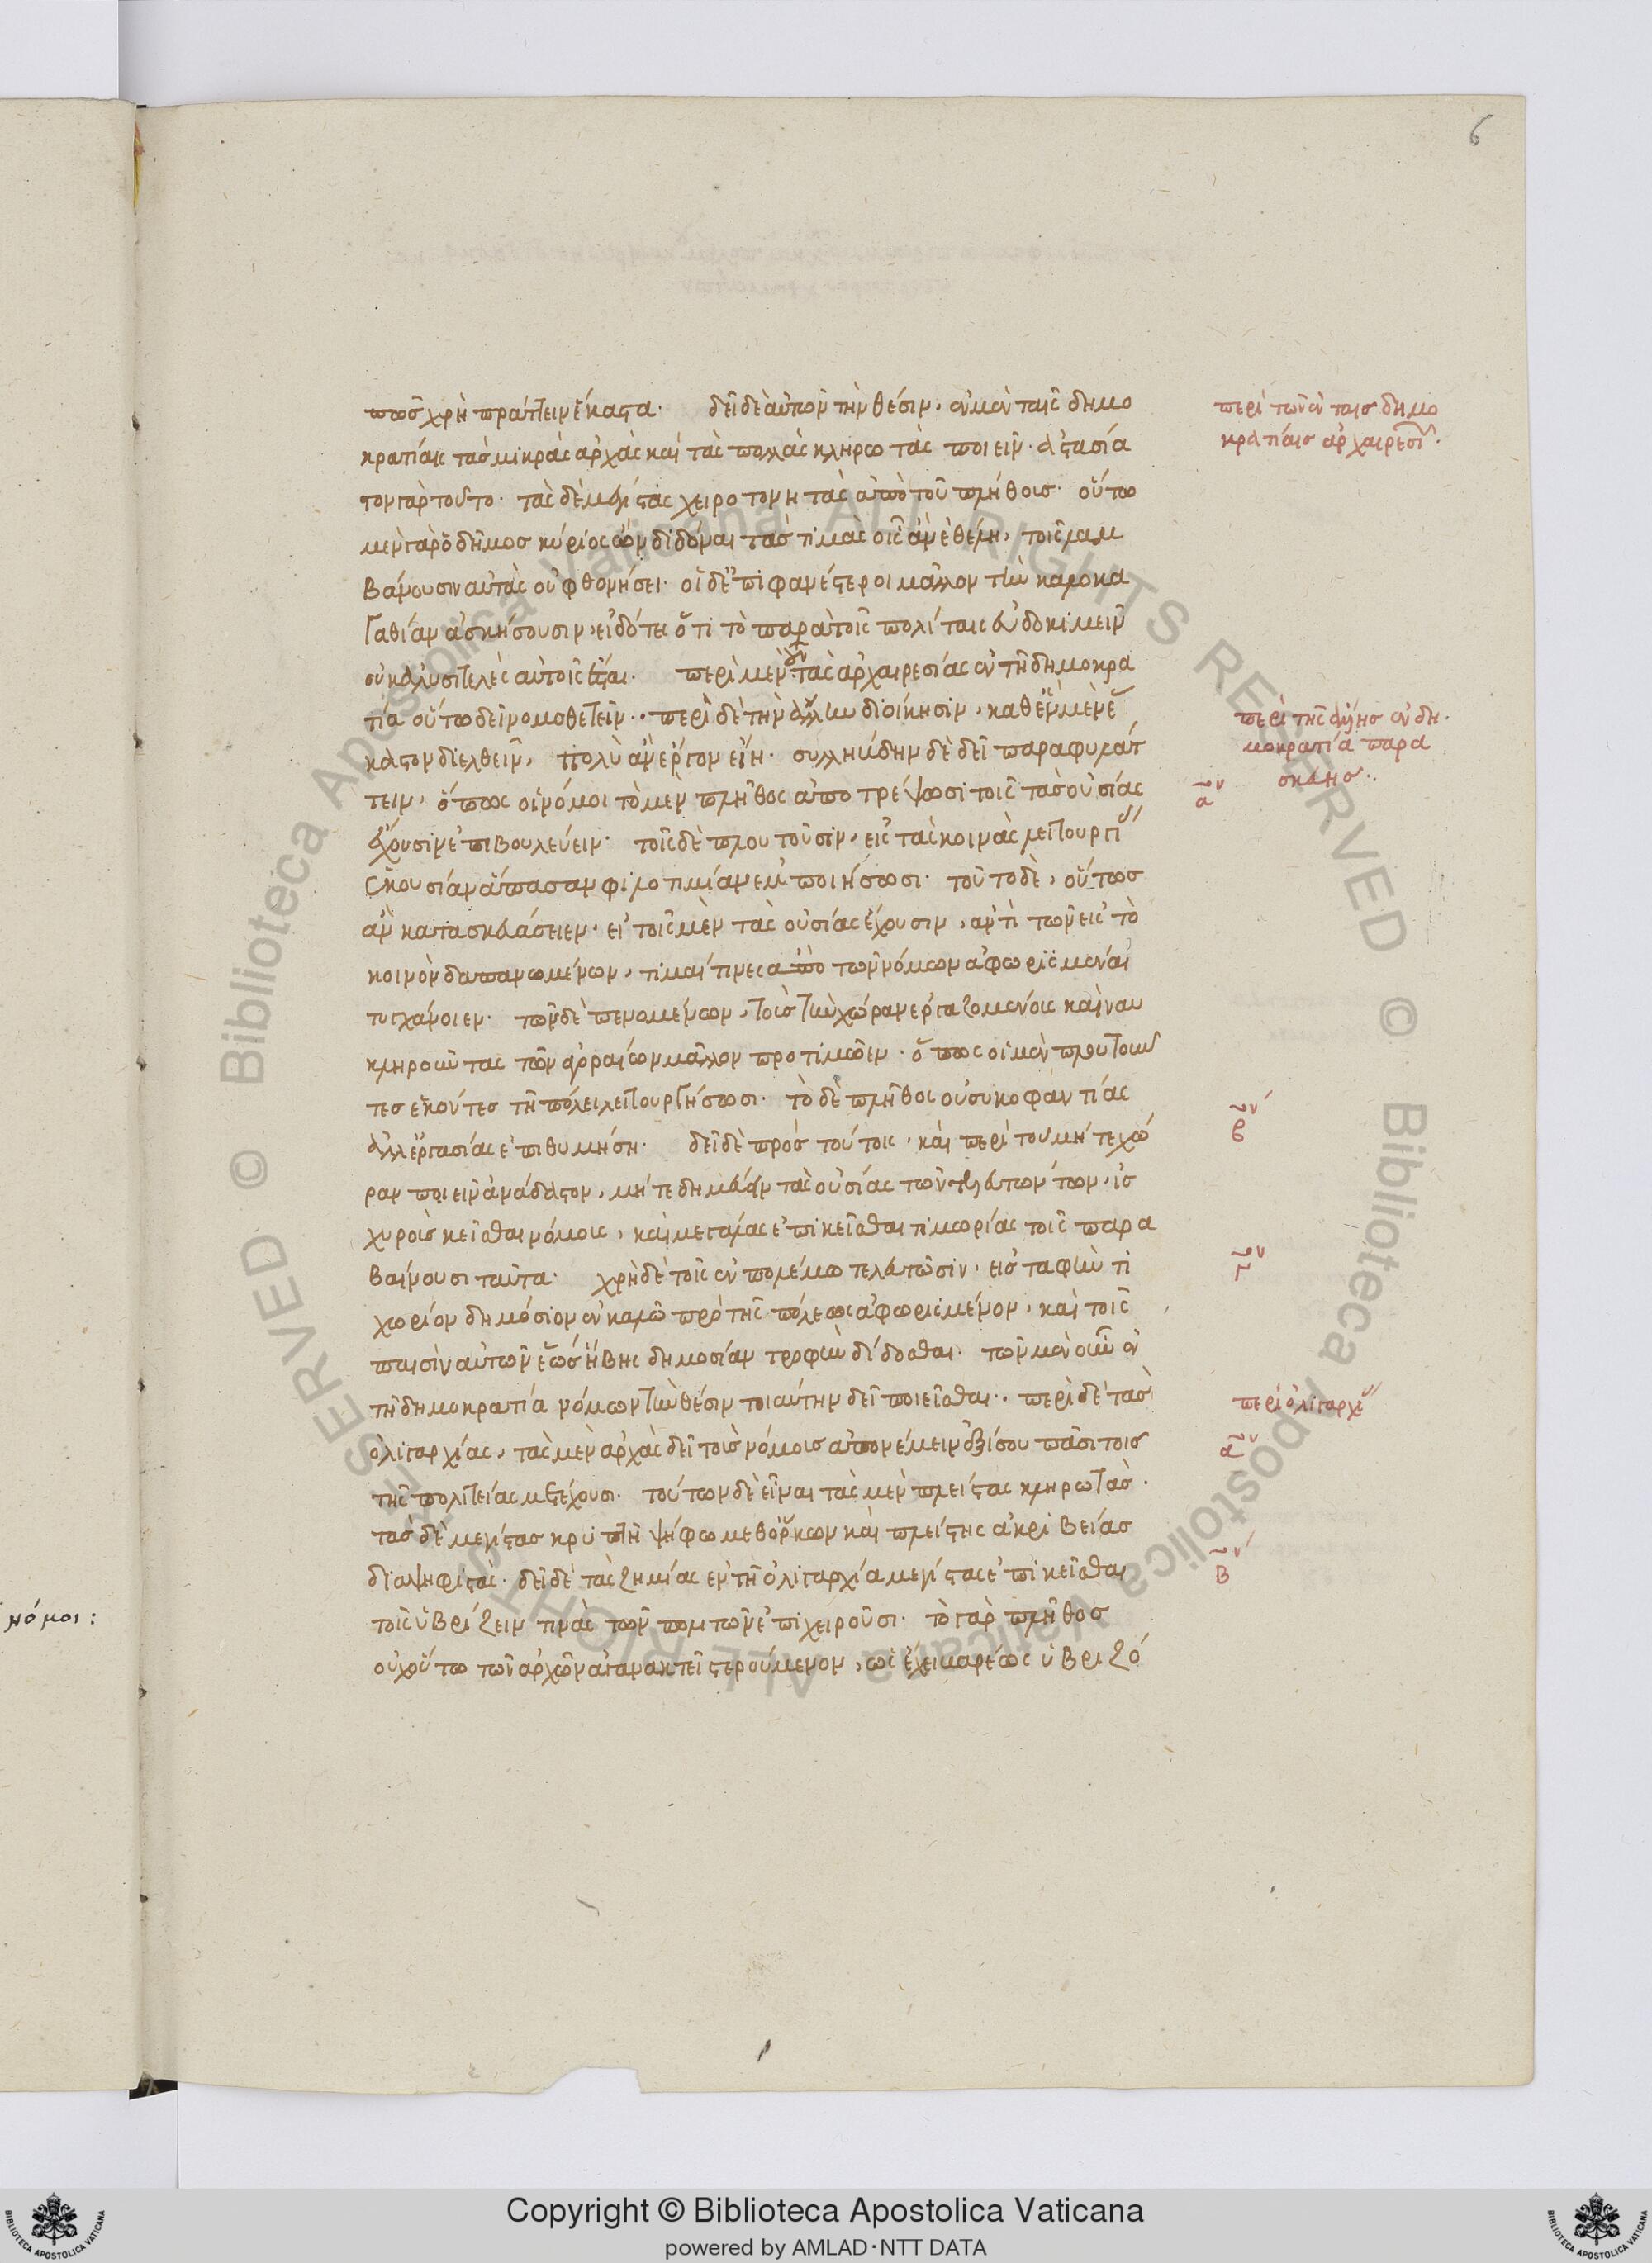 6
πῶς χρὴ πράττειν ἕκαστα. δεῖ δὲ αὐτῶν τὴν θέσιν, ἐν μὲν ταῖς δημο
κρατίαις τὰς μικρὰς ἀρχὰς καὶ τὰς πολλὰς κληρωτὰς ποιεῖν. ἀστασία
στον γὰρ τοῦτο. τὰς δὲ μεγίστας χειροτονητὰς ἀπὸ τοῦ πλήθους. οὕτω
μὲν γὰρ ὁ δῆμος κύριος ὢν διδόναι τὰς τιμὰς οἷς ἂν ἐθέλη, τοῖς λαμ
βάνουσιν αὐτὰς οὐ φθονήσει. οἱ δ' ἐπιφανέστεροι μᾶλλον τὴν καλοκα
γαθίαν ἀσκήσουσιν, εἰδότες ὅτι τὸ παρὰ τοῖς πολίταις εὐδοκιμεῖν
οὐκ ἀλυσιτελὲς αὐτοῖς ἔσται. περὶ μὲν οὖν τὰς ἀρχαιρεσίας ἐν τῆ δημοκρα
τία οὕτω δεῖ νομοθετεῖν.. περὶ δὲ τὴν ἄλλην διοίκησιν, καθ' ἓν μὲν ἕ
καστον διελθεῖν, πολὺ ἂν ἔργον εἴη. συλλήβδην δὲ δεῖ παραφυλάτ
τειν, ὅπως οἱ νόμοι τὸ μὲν πλῆθος ἀποτρέψωσι τοῖς τὰς οὐσίας
ἔχουσιν ἐπιβουλεύειν. τοῖς δὲ πλουτοῦσιν, εἰς τὰς κοινὰς λειτουργί
ἑκουσίαν ἅπασαν φιλοτιμίαν ἐμποιήσωσι. τοῦτο δὲ, οὕτως
ἂν κατασκευάσειεν. εἰ τοῖς μὲν τὰς οὐσίας ἔχουσιν, ἀντὶ τῶν εἰς τὸ
κοινὸν δαπανωμένων, τιμαί τινες ἀπὸ τῶν νόμων ἀφωρισμέναι
τυγχάνοιεν. τῶν δὲ πενομένων, τοὺς τὴν χώραν ἐργαζομένους καὶ ναυ
κληροῦντας τῶν ἀγοραίων μᾶλλον προτιμῶεν. ὅπως οἱ μὲν πλουτοῦν
τες ἑκόντες τῆ πόλει λειτουργήσωσι. τὸ δὲ πλῆθος οὐ συκοφαντίας
ἀλλ' ἐργασίας ἐπιθυμήση. δεῖ δὲ πρὸς τούτοις, καὶ περὶ τοῦ μήτε χώ
ραν ποιεῖν ἀνάδαστον, μήτε δημεύειν τὰς οὐσίας τῶν τελευτώντων, ἰσ
χυροὺς κεῖσθαι νόμους, καὶ μεγάλας ἐπικεῖσθαι τιμωρίας τοῖς παρα
βαίνουσι ταῦτα. χρὴ δὲ τοῖς ἐν πολέμω τελευτῶσιν, εἰς ταφήν τι
χωρίον δημόσιον ἐν καλῶ πρὸ τῆς πόλεως ἀφωρισμένον, καὶ τοῖς
παισὶν αὐτῶν ἕως ἥβης δημοσίαν τροφὴν δίδοσθαι. τῶν μὲν οὖν ἐν
τῆ δημοκρατία νόμων τὴν θέσιν τοιαύτην δεῖ ποιεῖσθαι.. περὶ δὲ τὰς
ὀλιγαρχίας, τὰς μὲν ἀρχὰς δεῖ τοὺς νόμους ἀπονέμειν ἐξ ἴσου πᾶσι τοῖς
τῆς πολιτείας μετέχουσι. τούτων δὲ εἶναι τὰς μὲν πλείστας κληρωτὰς.
τὰς δὲ μεγίστας κρυπτῆ ψήφω μεθ' ὅρκων καὶ πλείστης ἀκριβείας
διαψηφιστάς. δεῖ δὲ τὰς ζημίας ἐν τῆ ὀλιγαρχία μεγίστας ἐπικεῖσθαι
τοῖς ὑβρίζειν τινὰς τῶν πολιτῶν ἐπιχειροῦσι. τὸ γὰρ πλῆθος
οὐχ οὕτω τῶν ἀρχῶν ἀγανακτεῖ στερούμενον, ὡς ἔχει βαρέως ὑβριζό
περὶ τῶν ἐν ταῖς δημο
κρατίαις ἀρχαιρεσι.
περὶ τῆς ἄλλης ἐν δη.
μοκρατία παρα
σκευῆς..
αον
βον
γον
περὶ ὀλιγαρχι
αον
βον
νόμοι:
Copyright © Biblioteca Apostolica Vaticana
powered by AMLAD·NTT DATA